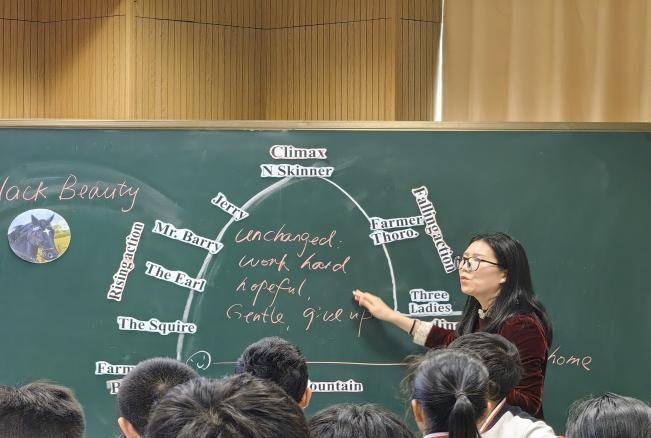 Black Beauty
Climax
N Skinner
Jerry
Mr. Barry
The Earl
The Squire
Rising action
Farmer
Thoro
Falling action
Three
Ladies
unchanged:
work hard
hopeful,
Gentle, give up
home